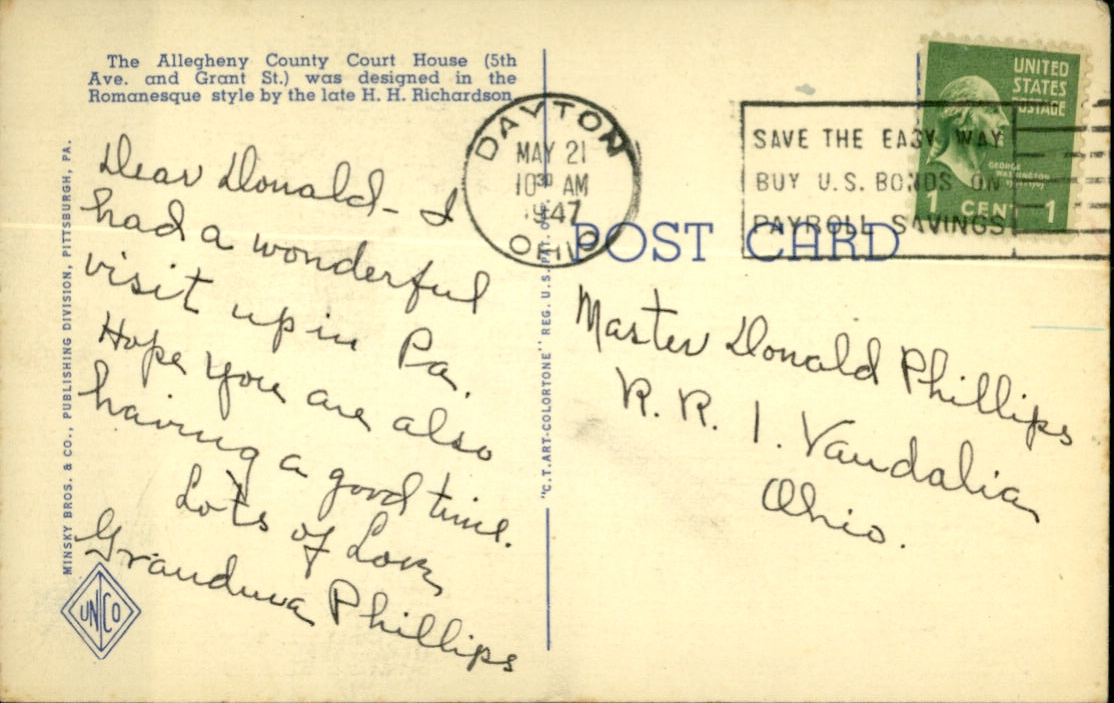 The Allegheny County Court House (5th
Ave. and Grant St.) was designed in the
Romanesque style by the late H. H. Richardson
Dear Donald – I
had a wonderful
visit up in Pa.
Hope you are also
having a good time.
Lots of Love,
Grandma Phillips
MINSKY BROS. & CO., PUBLISHING DIVISION, PITTSBURGH, PA.
UNCO
"C.T. ART-COLORTONE" REG. U.S. PAT. OFF.
DAYTON
MAY 21
10 30 AM
1947
OHIO
SAVE THE EASY WAY
BUY U.S. BONDS ON
PAYROLL SAVINGS
UNITED
STATES
POSTAGE
GEORGE
WASHINGTON
1 CENT 1
POST CARD
Master Donald Phillips
R. R. 1. Vandalia
Ohio.